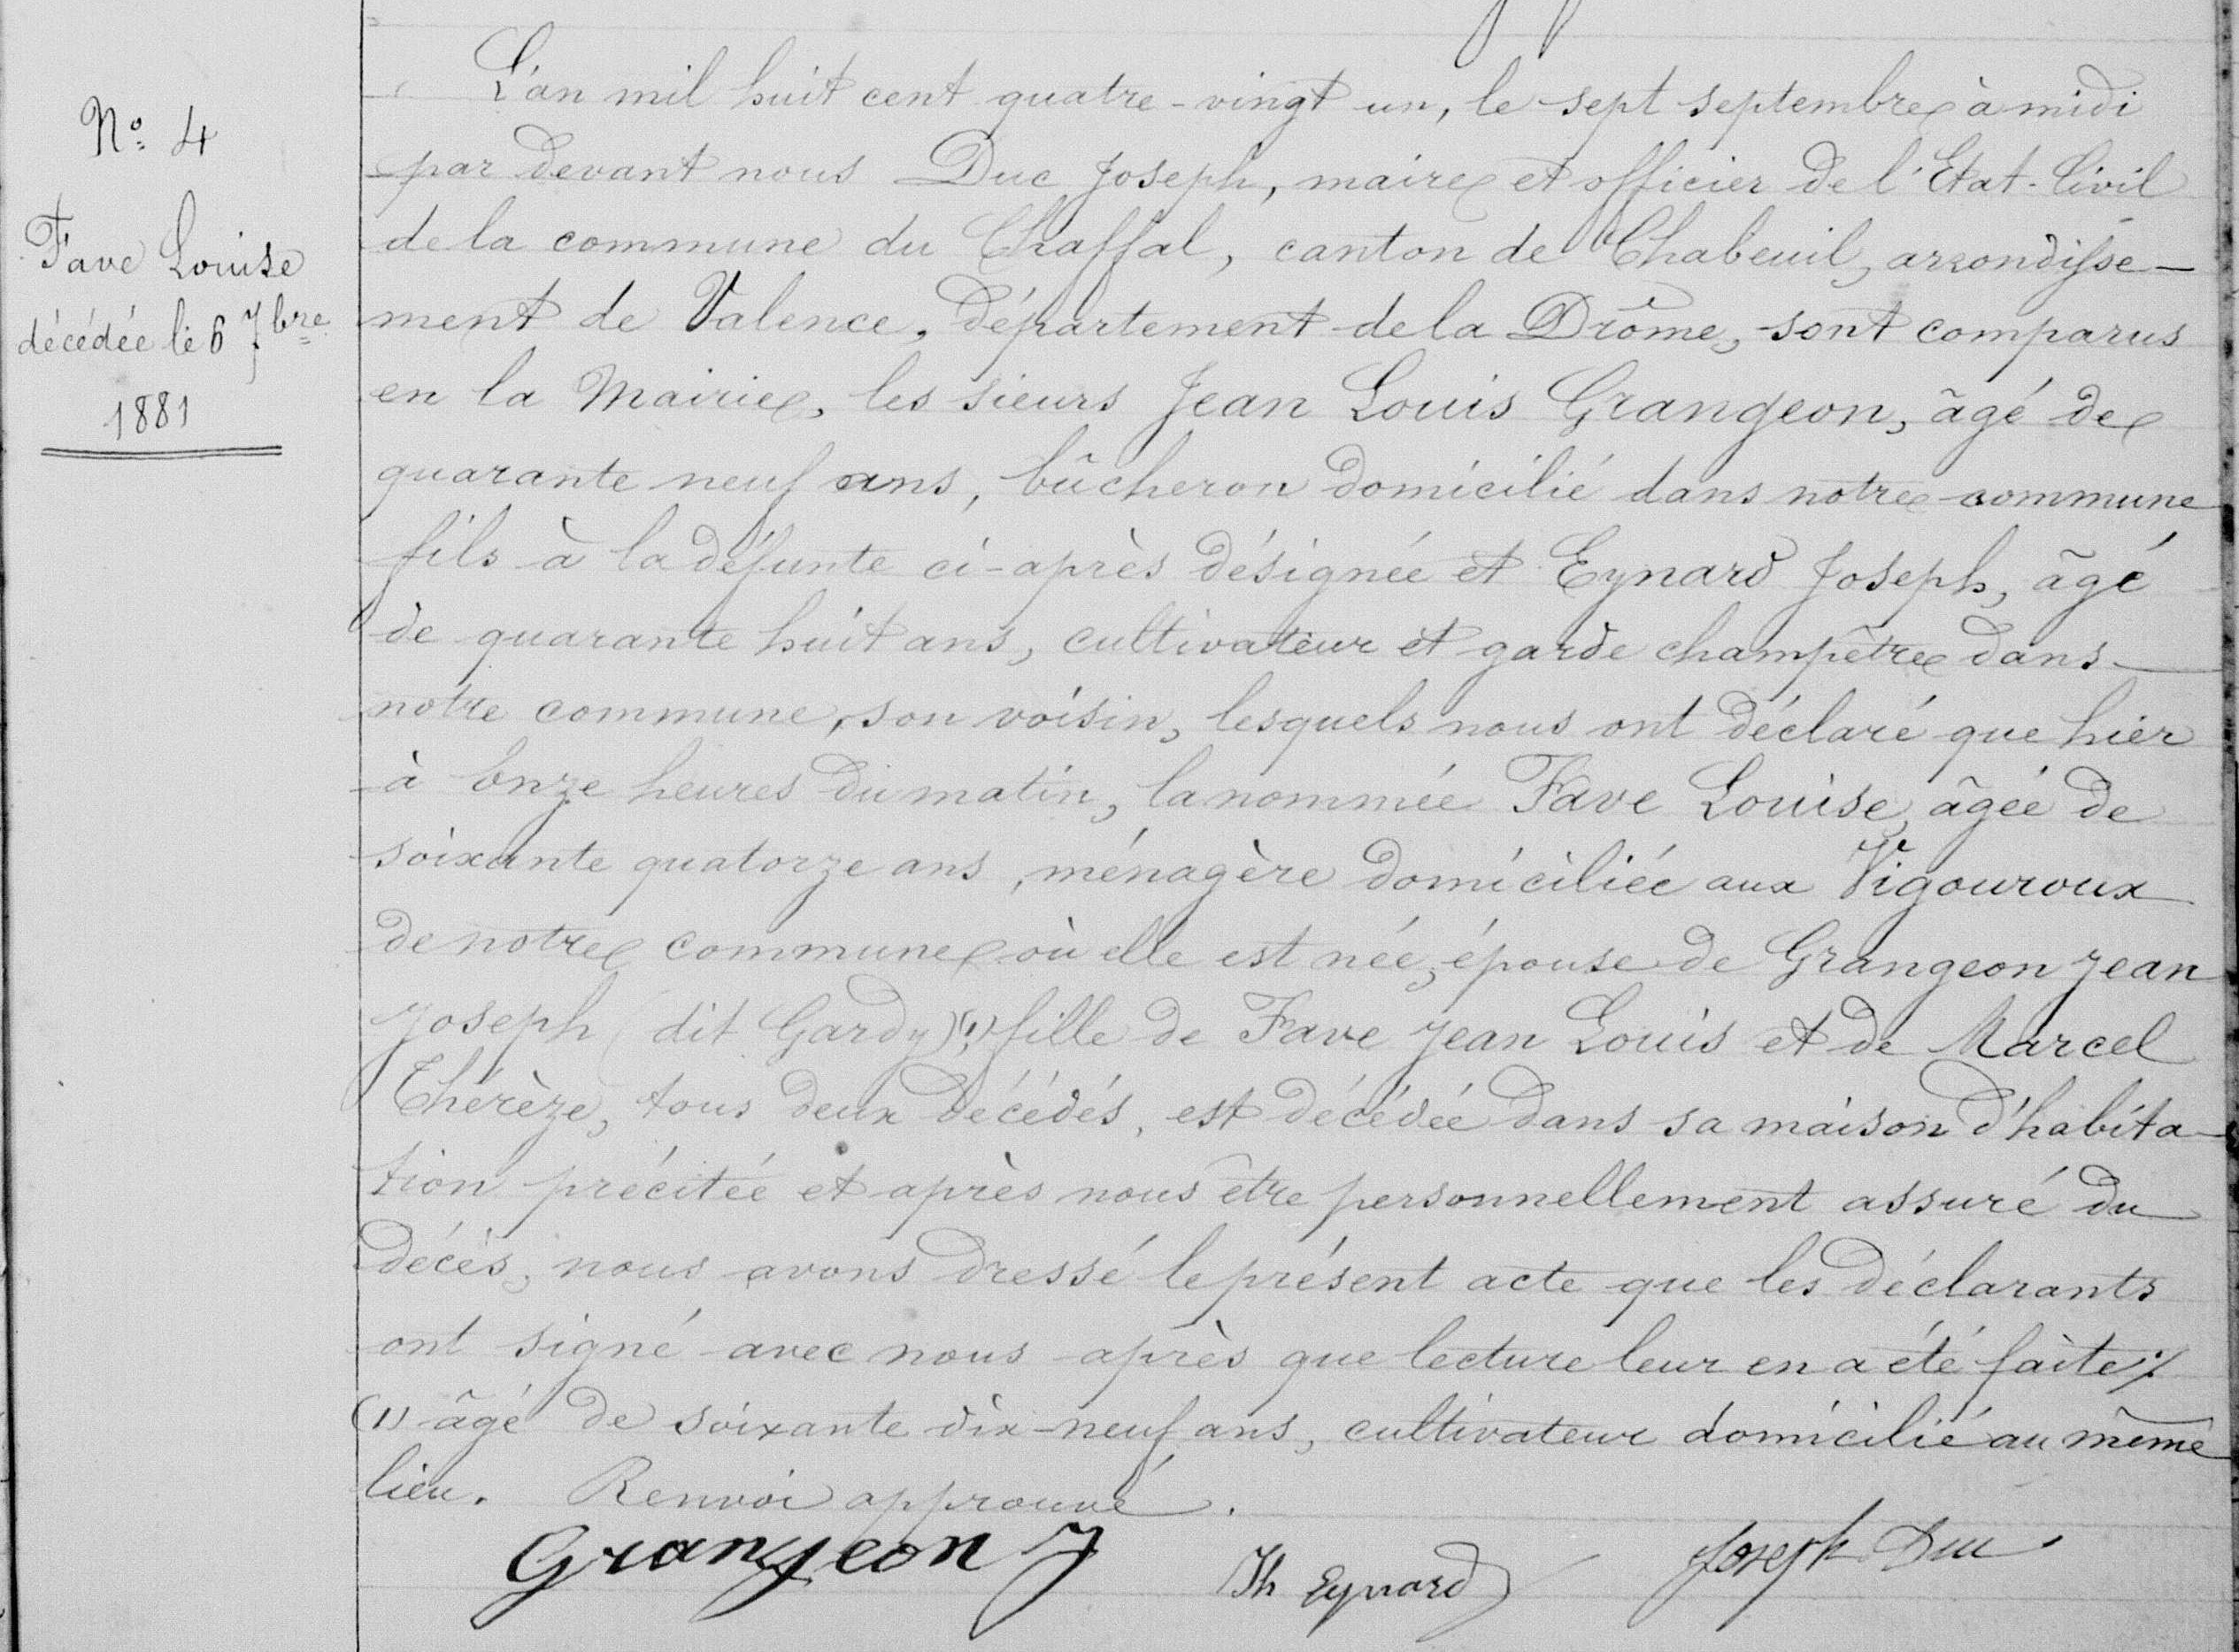 N° 4
Fave Louise
décédée le 6 7bre
1881
L'an mil huit cent quatre-vingt un, le sept septembre à midi
par devant nous Duc Joseph, maire et officier de l'Etat-Civil
de la commune du Chaffal, canton de Chabeuil, arrondisse-
ment de Valence, département de la Drôme, sont comparus
en la Mairie, les sieurs Jean Louis Grangeon, âgé de
quarante neuf ans, bûcheron domicilié dans notre commune
fils à la défunte ci-après désignée et Eynard Joseph, âgé
de quarante huit ans, cultivateur et garde champêtre dans
notre commune, son voisin, lesquels nous ont déclaré que hier
à Onze heures du matin, la nommée Fave Louise, âgée de
soixante quatorze ans, ménagère domiciliée aux Vigouroux
de notre commune où elle est née, épouse de Grangeon Jean
Joseph (dit Gardy) (1), fille de Fave Jean Louis et de Marcel
Thérèze, tous deux décédés, est décédée dans sa maison d'habita-
tion précitée et après nous être personnellement assuré du
décès, nous avons dressé le présent acte que les déclarants
ont signé avec nous après que lecture leur en a été faite ./.
(1) âgé de soixante dix-neuf ans, cultivateur domicilié au même
lieu. Renvoi approuvé.
Grangeon J
Jh Eynard
Joseph Duc